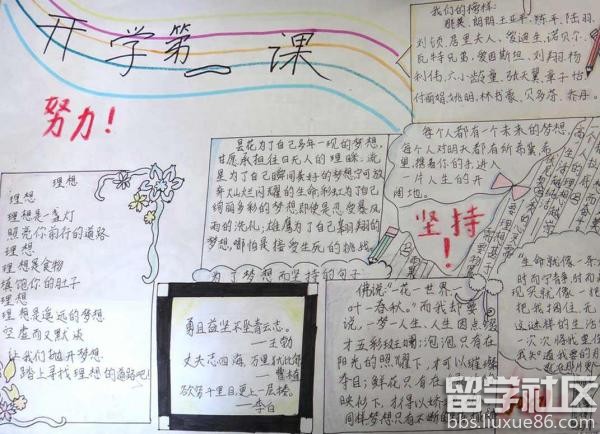 开学第一课
努力！
我们的榜样：
郎朗、王亚平、陈平、陆羽、
刘颀、居里夫人、爱迪生、诺贝尔、
瓦特兄弟、爱因斯坦、刘翔、杨
利伟、六小龄童、张天翼、章子怡
付丽娟、姚明、林书豪、贝多芬、乔丹。
理想
理想
理想是一盏灯
照亮你前行的道路
理想
理想是食物
填饱你的肚子
理想
理想是遥远的梦想
空虚而又默
让我们抛开梦想
踏上寻找理想的道路吧！
昙花为了自己多年一现的梦想，
甘愿承担往日无人的理睬。流星
是为了自己瞬间美好的梦想宁可放
弃灿烂闪耀的生命；彩虹为了自己
绚丽多彩的梦想即使是忍受暴风
雨的洗礼；雄鹰为了自己翱翔的
梦想，哪怕是接受生死的挑战。
为了梦想而坚持的句子
每个人都有一个未来的梦想，
每个人对明天都有所希冀，
里，携着你的手，进入
一片人生的开
阔地。
坚持！
穷且益坚不坠青云志。
——王勃
丈夫志四海，万里犹比邻
曹植
欲穷千里目，更上一层楼。
——李白
佛说："一花一世界一
叶一春秋。"而我却要
说，一梦一人生，人生因点缀
才五彩斑斓；泡泡只有在
阳光的照耀下，才可以璀璨
夺目；鲜花只有在
映衬下，才得以娇
同样梦想只有不断的
生命就像一个
时而宁静，时而
现实就像一把
把我捆住，无
这迷样的生活
一次次将我重
我知道我要的
留学社区
bbs.liuxue86.com